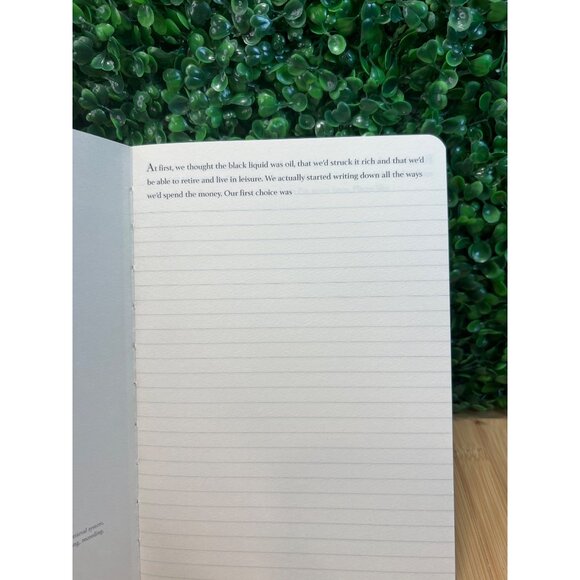 At first, we thought the black liquid was oil, that we'd struck it rich and that we'd
be able to retire and live in leisure. We actually started writing down all the ways
we'd spend the money. Our first choice was